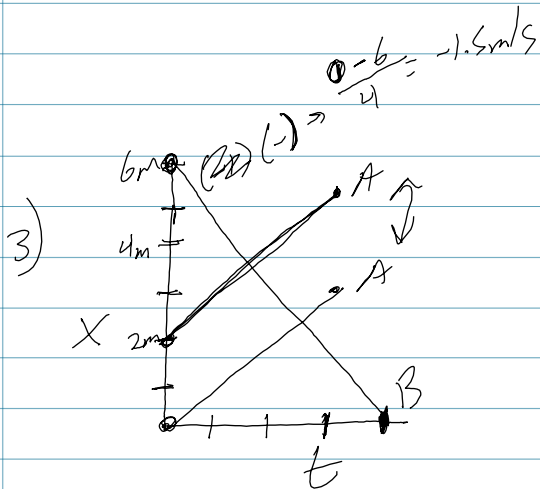 0 - 6 / 4 = -1.5m/s
6m (-)
A
3)
4m
A
X 2m
B
t